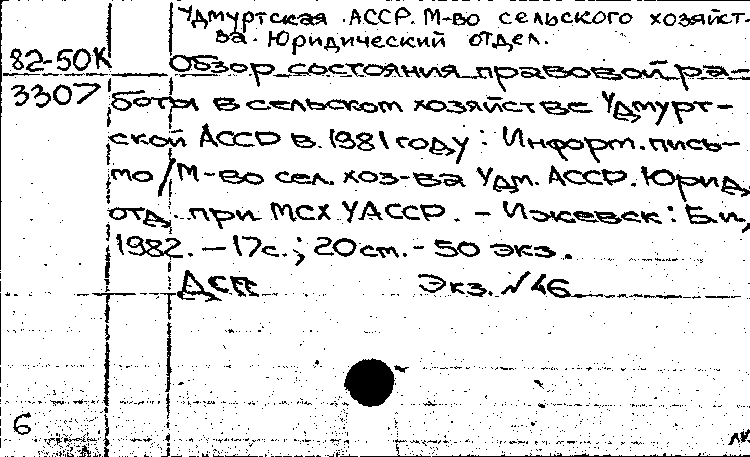 Удмуртская АССР. М-во сельского хозяйст-
ва. Юридический отдел.
82-50К Обзор состояния правовой ра-
3307 боты в сельском хозяйстве Удмурт-
ской АССР в 1981 году: Информ. пись-
мо / М-во сел. хоз-ва Удм. АССР. Юрид.
отд. при МСХ УАССР. - Ижевск: Б.и.,
1982. - 17с.; 20 см. - 50 экз.
ДСП Экз. №46
6
лк